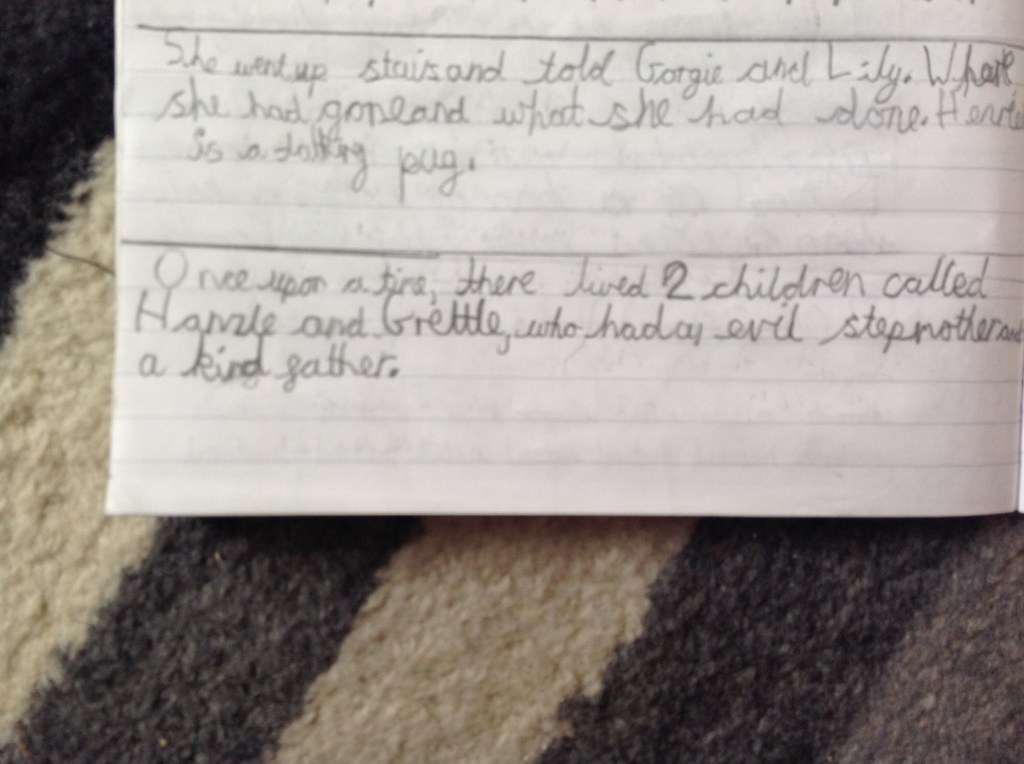 She went up stairs and told Gorgie and Lily. Where
she had gone and what she had done.
is a talking pug.
Once upon a time, there lived 2 children called
Hanzle and Grettle, who had a evil stepmother and
a kind father.